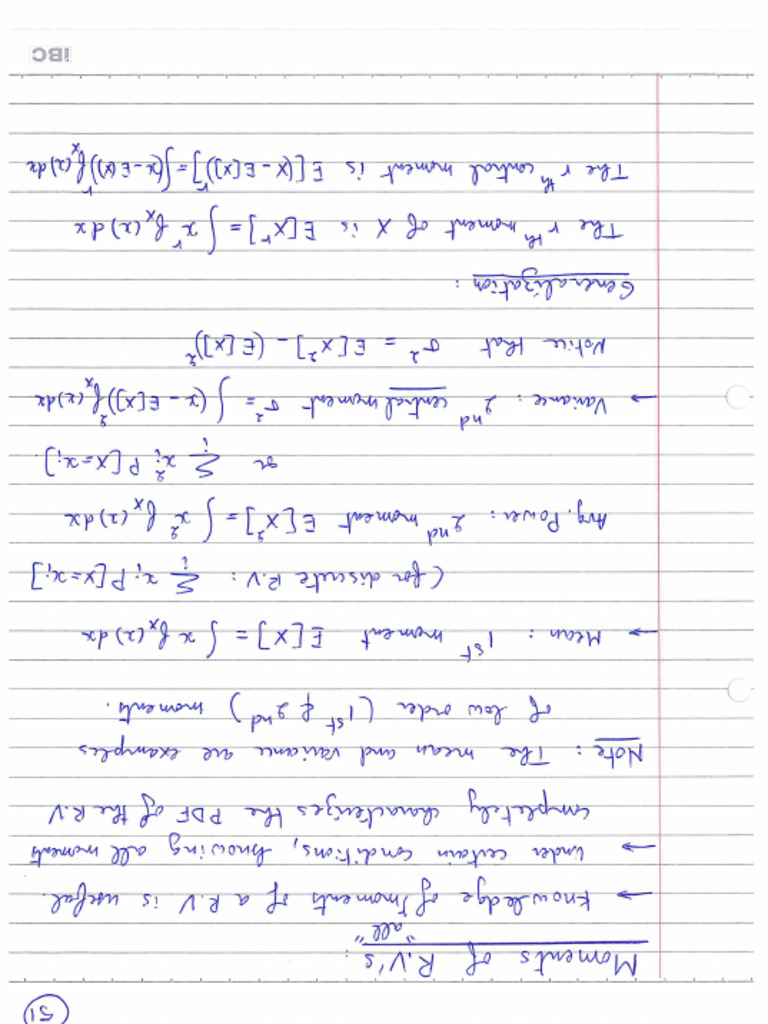 51
Moments of R.V's :
"all"
→ Knowledge of moments of a R.V is useful.
→ Under certain conditions, knowing all moments
completely characterizes the PDF of the R.V
Note : The mean and variance are examples
of low order (1st & 2nd) moments.
→ Mean : 1st moment E[X] = ∫ x fₓ(x) dx
(for discrete R.V : Σᵢ xᵢ P[X=xᵢ]
Avg. Power : 2nd moment E[X²] = ∫ x² fₓ(x) dx
or Σᵢ xᵢ² P[X=xᵢ].
→ Variance : 2nd central moment σ² = ∫ (x - E[X])² fₓ(x) dx
Notice that σ² = E[X²] - (E[X])²
Generalization :
The rth moment of X is E[Xʳ] = ∫ xʳ fₓ(x) dx
The rth central moment is E[(X - E[X])ʳ] = ∫(x - E(X))ʳ fₓ(x) dx
IBC